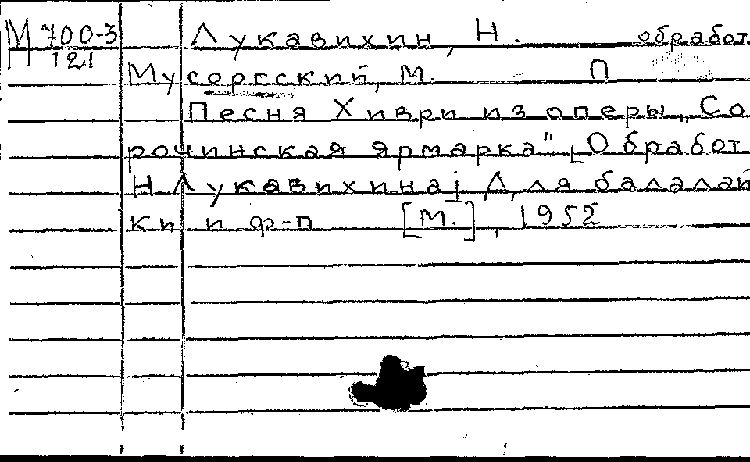 М 700-3 Лукавихин, Н. обработ.
121
Мусоргский, М. П
Песня Хиври из оперы „Со
рочинская ярмарка" [Обработ.
Н Лукавихина] Для балалай
ки и ф-п [М.], 1952